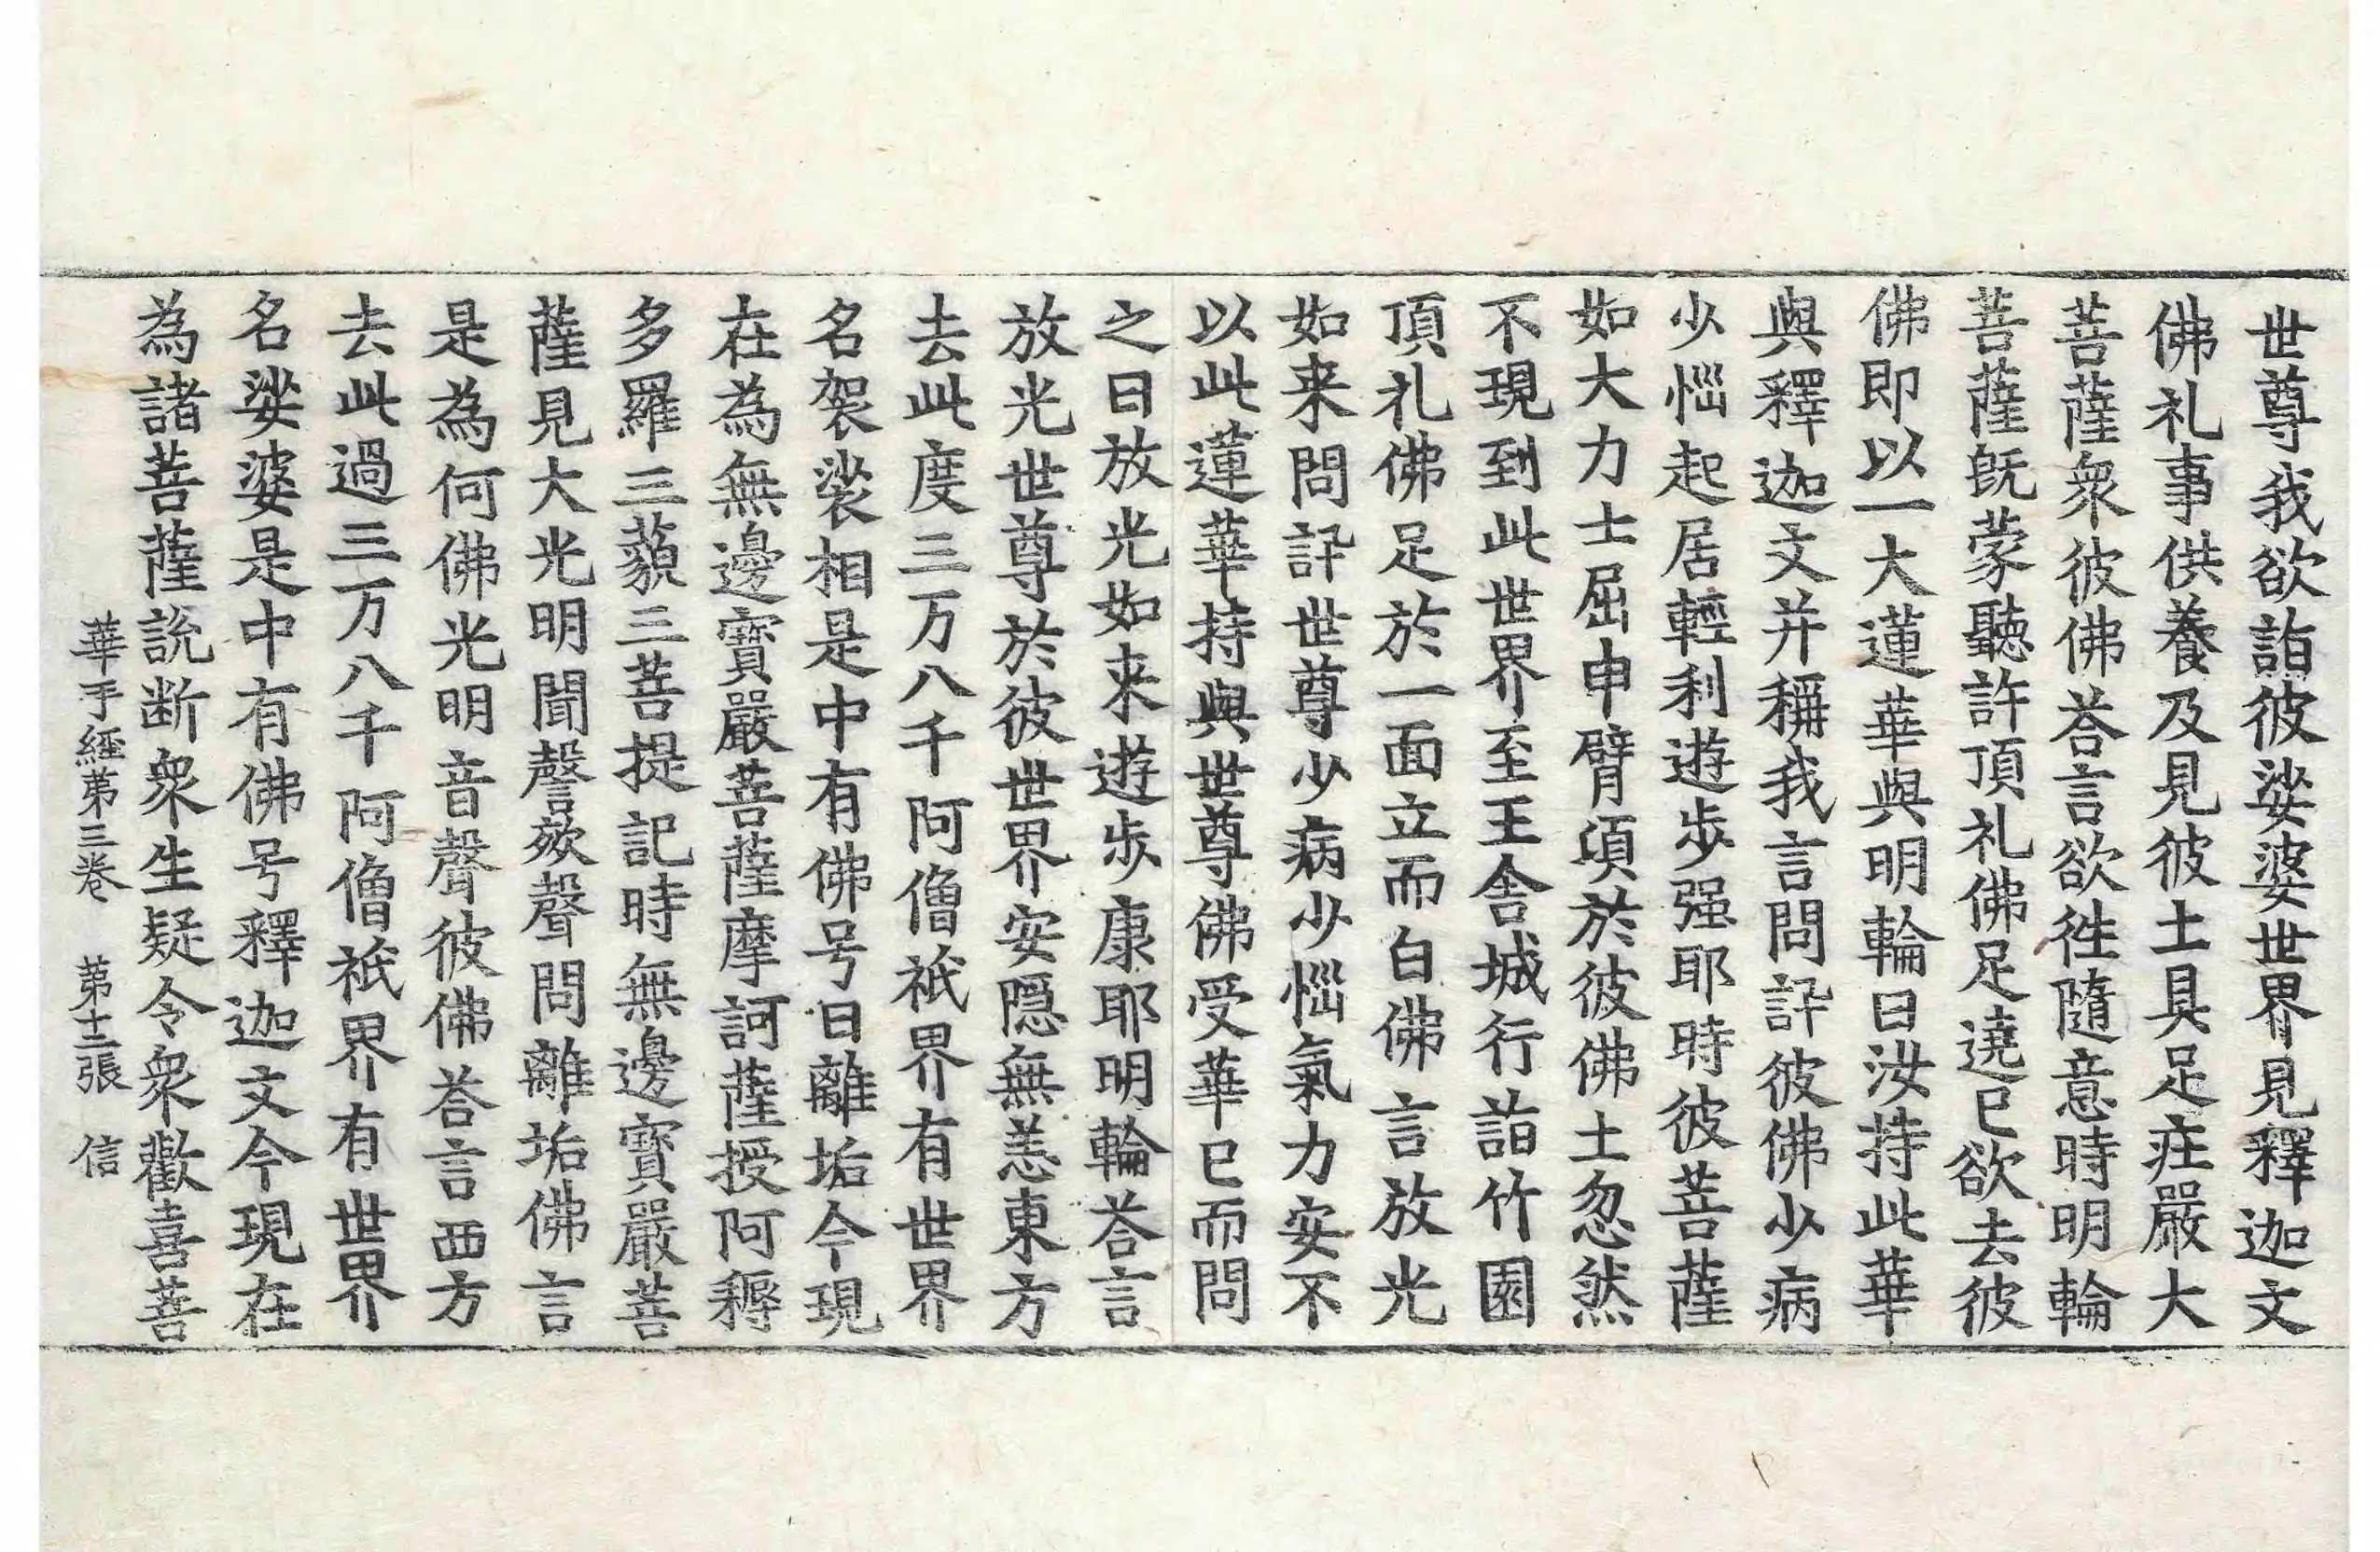 世尊我欲詣彼娑婆世界見釋迦文
佛礼事供養及見彼土具足庄嚴大
菩薩衆彼佛荅言欲徃隨意時明輪
菩薩旣蒙聽許頂礼佛足遶已欲去彼
佛即以一大蓮華與明輪曰汝持此華
與釋迦文并稱我言問訊彼佛少病
少惱起居輕利遊步强耶時彼菩薩
如大力士屈申臂頃於彼佛土忽然
不現到此世界至王舍城行詣竹園
頂礼佛足於一面立而白佛言放光
如来問訊世尊少病少惱氣力安不
以此蓮華持與世尊佛受華已而問
之曰放光如来遊步康耶明輪荅言
放光世尊於彼世界安隱無恙東方
去此度三万八千阿僧祇界有世界
名袈裟相是中有佛号曰離垢今現
在為無邊寶嚴菩薩摩訶薩授阿耨
多羅三藐三菩提記時無邊寶嚴菩
薩見大光明聞謦欬聲問離垢佛言
是為何佛光明音聲彼佛荅言西方
去此過三万八千阿僧祇界有世界
名娑婆是中有佛号釋迦文今現在
為諸菩薩說断衆生疑令衆歡喜菩
華手經第三卷 第十二張 信